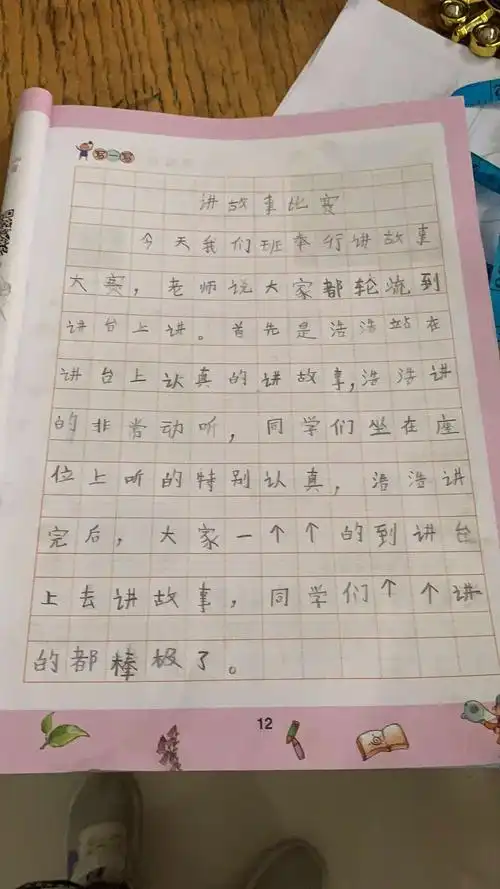 写一写
讲故事比赛
今天我们班举行讲故事
大赛，老师说大家都轮流到
讲台上讲。首先是浩浩站在
讲台上认真的讲故事，浩浩讲
的非常动听，同学们坐在座
位上听的特别认真，浩浩讲
完后，大家一个个的到讲台
上去讲故事，同学们个个讲
的都棒极了。
12